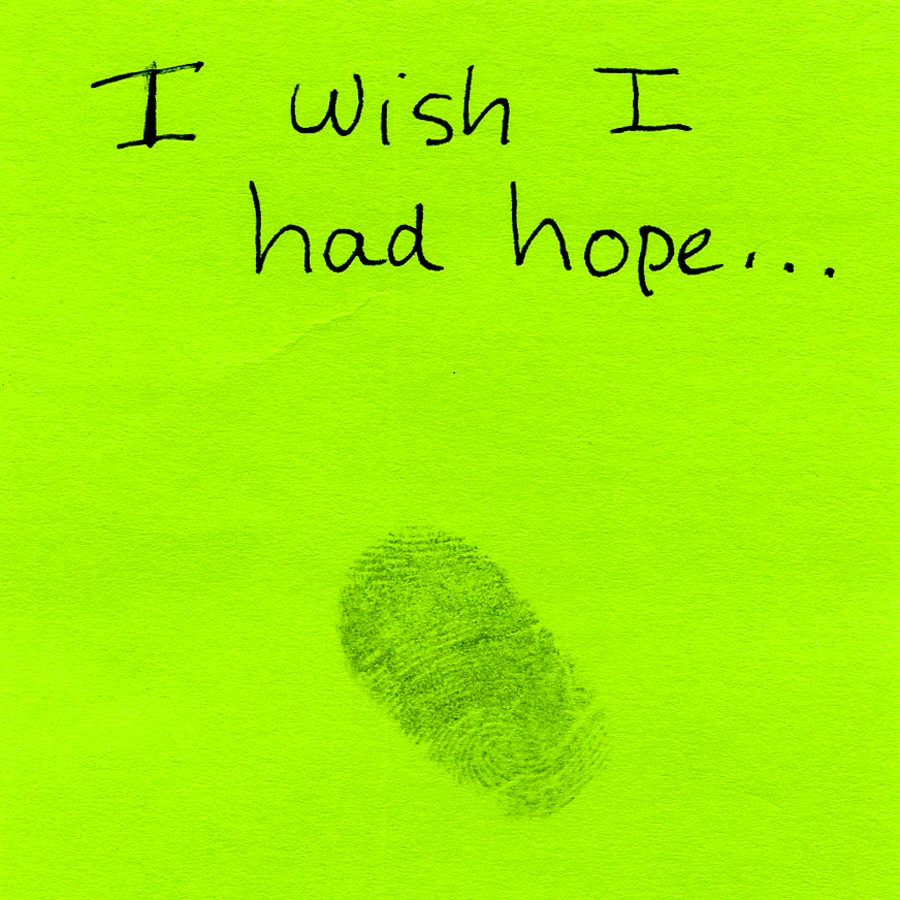 I wish I
had hope...